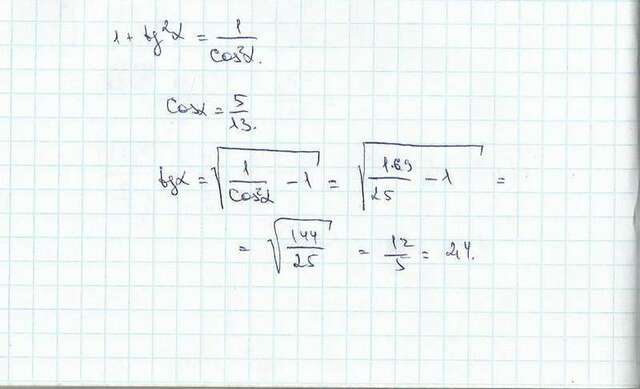 1 + tg²α = 1/cos²α.
cosα = 5/13.
tgα = √(1/cos²α - 1) = √(169/25 - 1) =
= √(144/25) = 12/5 = 2,4.